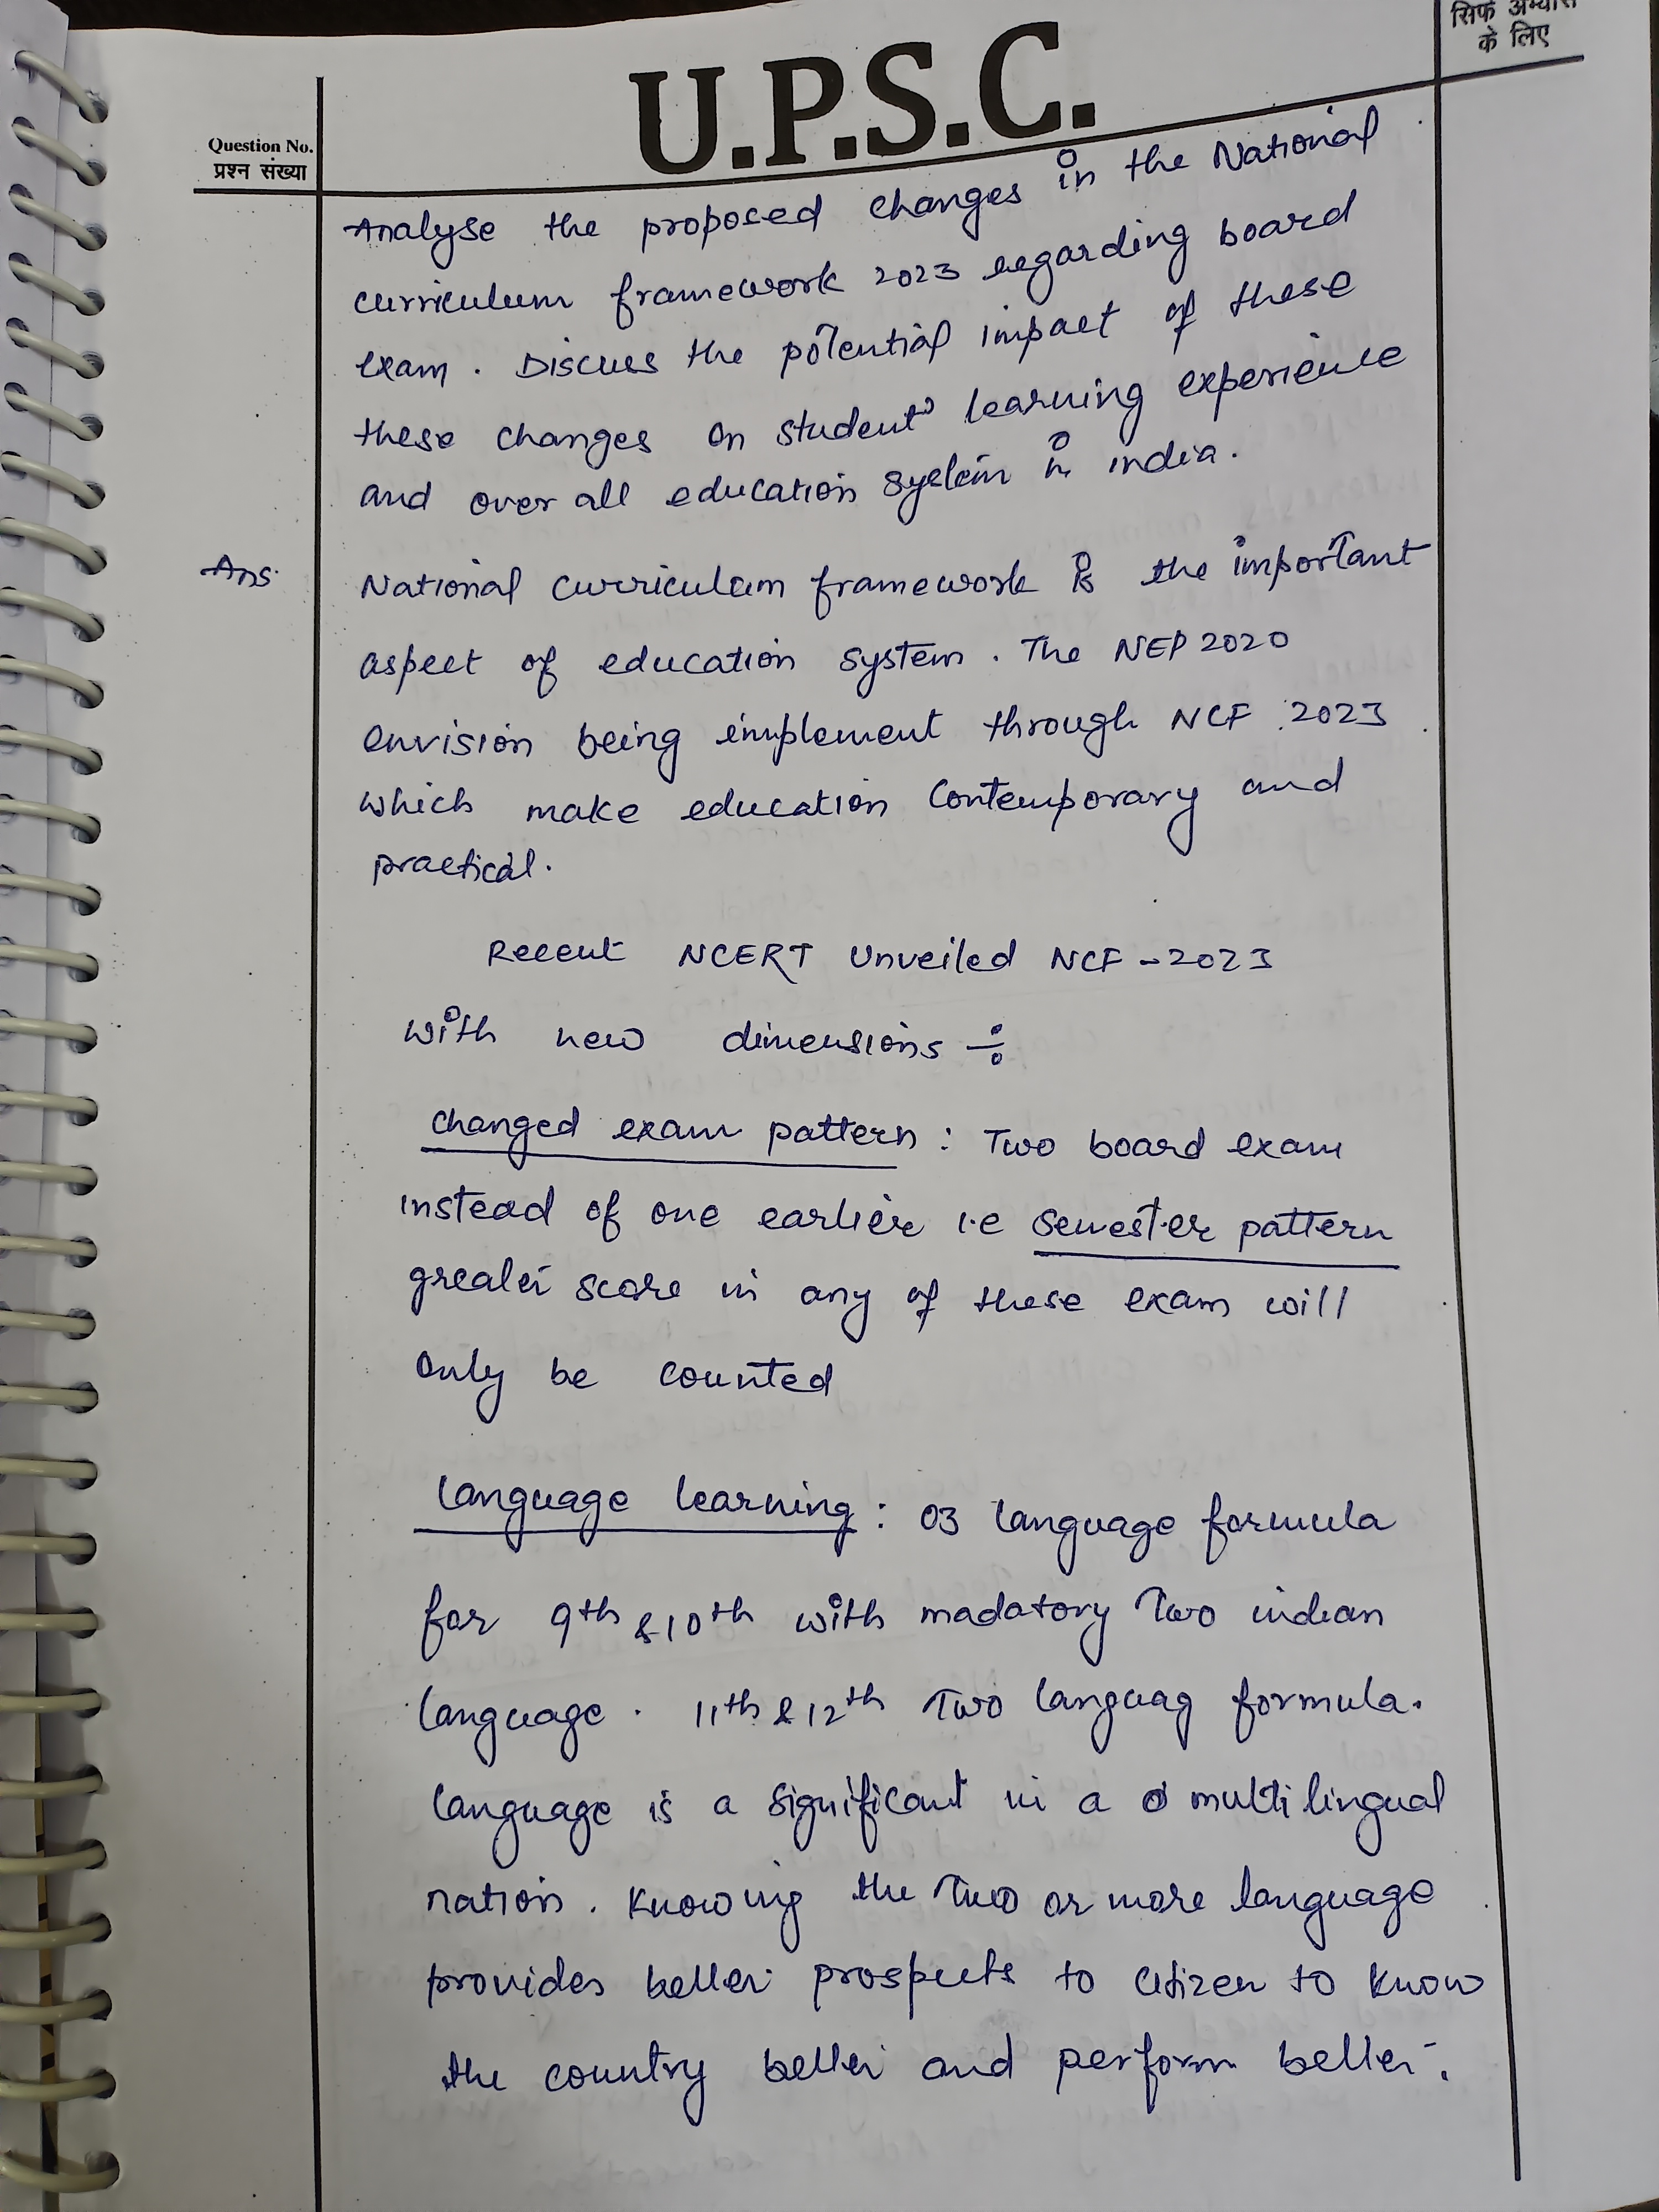 सिर्फ अभ्यास
के लिए
U.P.S.C.
Question No.
प्रश्न संख्या
Analyse the proposed changes in the National
curriculum framework 2023 regarding board
exam. Discuss the potential impact of these
these changes on student's learning experience
and over all education system in india.
Ans.
National curriculum framework is the important
aspect of education system. The NEP 2020
envision being implement through NCF 2023
which make education contemporary and
practical.
Recent NCERT Unveiled NCF-2023
with new dimensions ÷
changed exam pattern: Two board exam
instead of one earlier i.e semester pattern
greater score in any of these exam will
only be counted
Language learning: 03 language formula
for 9th & 10th with madatory Two indian
language. 11th & 12th Two languag formula.
language is a significant in a multilingual
nation. Knowing the Two or more language
provides better prospects to citizen to know
the country better and perform better.